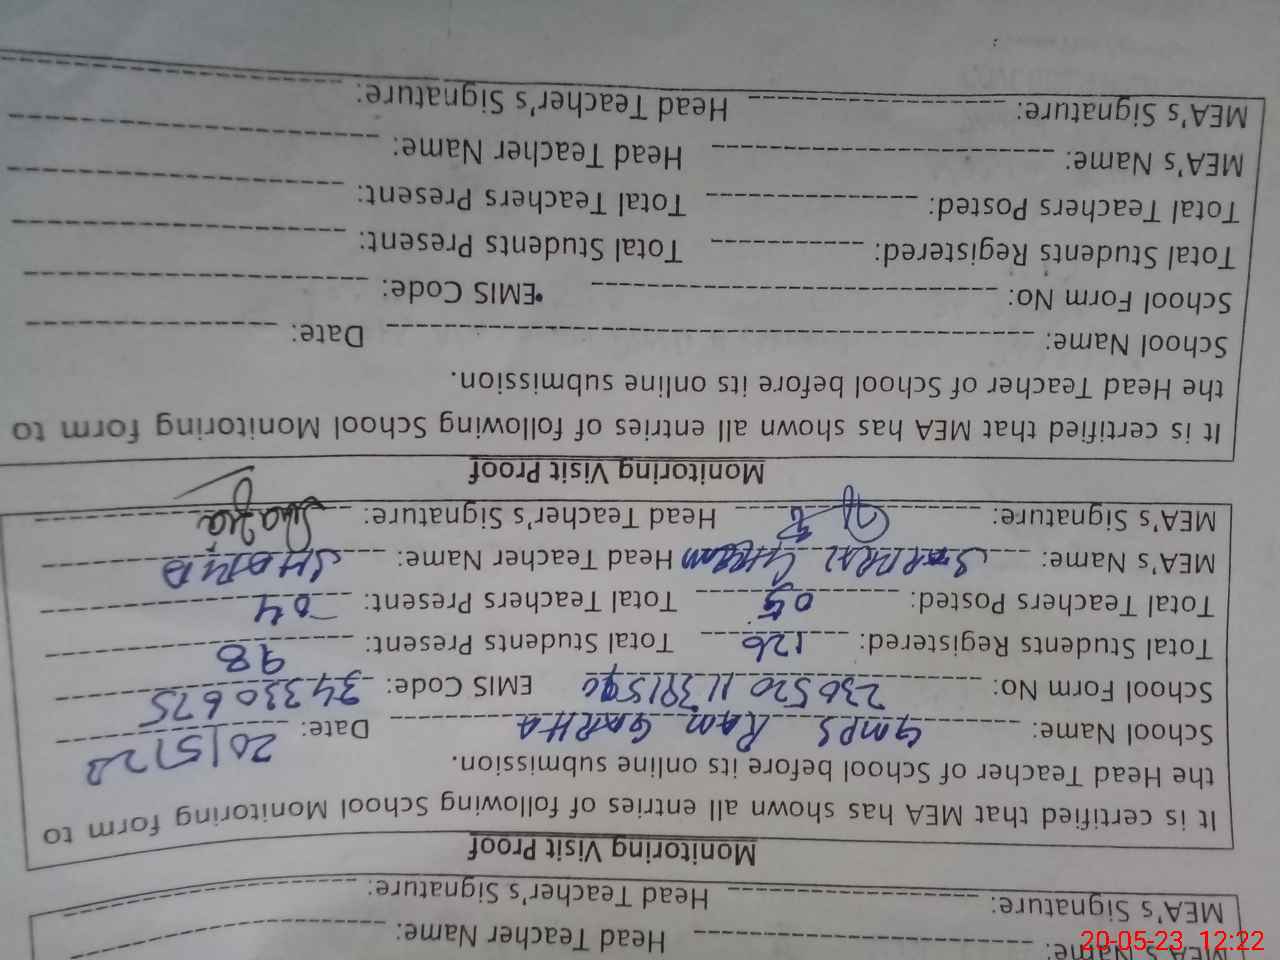 MEA's Name: Head Teacher Name:
MEA's Signature: Head Teacher's Signature:
Monitoring Visit Proof
It is certified that MEA has shown all entries of following School Monitoring form to
the Head Teacher of School before its online submission.
School Name: GMPS RAM GARHA Date: 20/5/22
School Form No: EMIS Code: 34330675
Total Students Registered: 126 Total Students Present: 98
Total Teachers Posted: 05 Total Teachers Present: 04
MEA's Name: Head Teacher Name:
MEA's Signature: Head Teacher's Signature: Shazia
Monitoring Visit Proof
It is certified that MEA has shown all entries of following School Monitoring form to
the Head Teacher of School before its online submission.
School Name: Date:
School Form No: EMIS Code:
Total Students Registered: Total Students Present:
Total Teachers Posted: Total Teachers Present:
MEA's Name: Head Teacher Name:
MEA's Signature: Head Teacher's Signature:
20-05-23 12:22